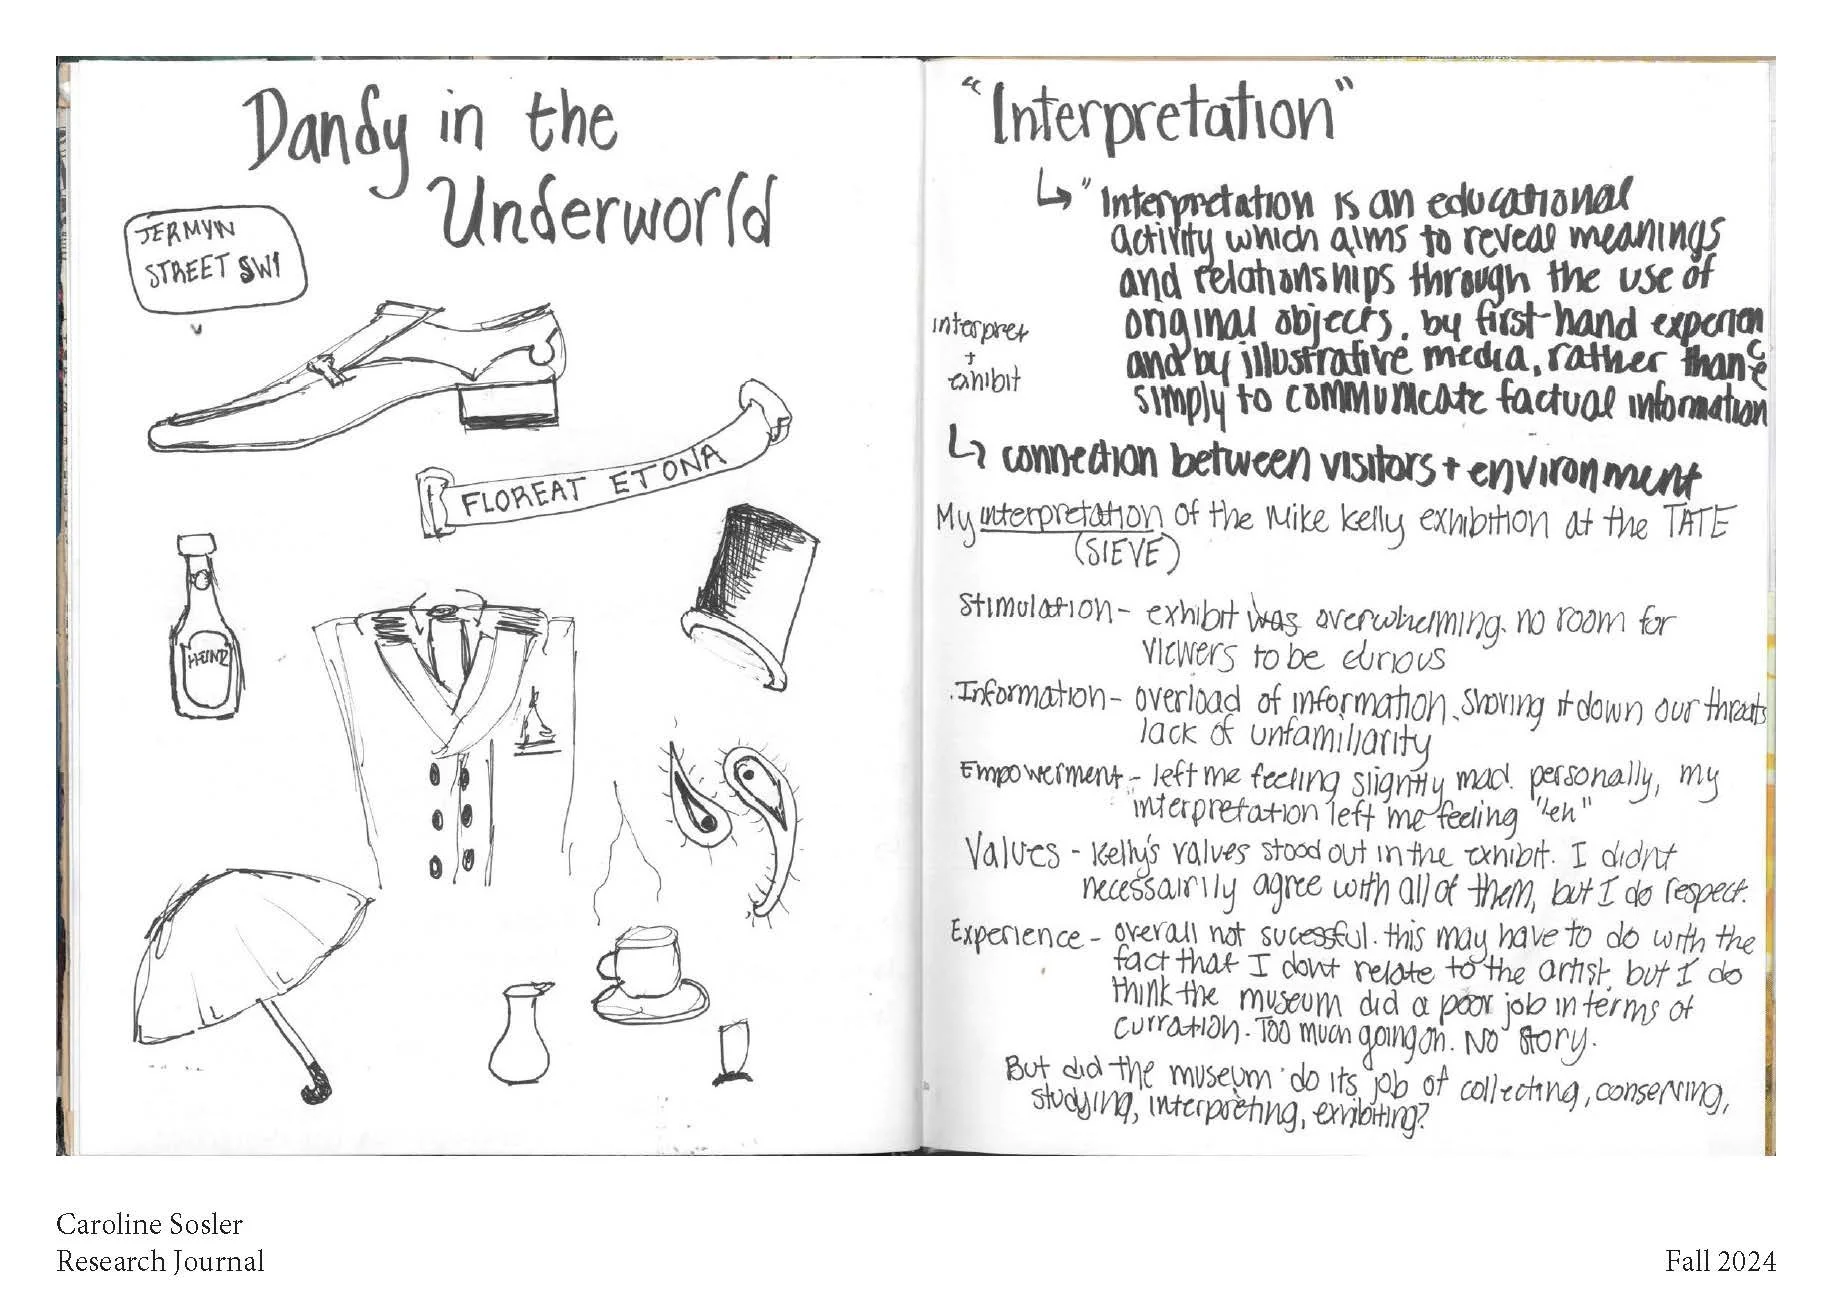 Dandy in the
Underworld
JERMYN
STREET SW1
FLOREAT ETONA
HEINZ
"Interpretation"
↳ "Interpretation is an educational
activity which aims to reveal meanings
and relationships through the use of
original objects, by first-hand experience
and by illustrative media, rather than
simply to communicate factual information
interpret
+
exhibit
↳ connection between visitors + environment
My interpretation of the Mike Kelly exhibition at the TATE
(SIEVE)
Stimulation - exhibit was overwhelming. no room for
viewers to be curious
Information - overload of information. Shoving it down our throats
lack of unfamiliarity
Empowerment - left me feeling slightly mad. personally, my
interpretation left me feeling "eh"
Values - Kelly's values stood out in the exhibit. I didnt
necessairily agree with all of them, but I do respect.
Experience - overall not sucessful. this may have to do with the
fact that I dont relate to the artist, but I do
think the museum did a poor job in terms of
curration. Too much going on. No story.
But did the museum do its job of collecting, conserving,
studying, interpreting, exhibiting?
Caroline Sosler
Research Journal
Fall 2024